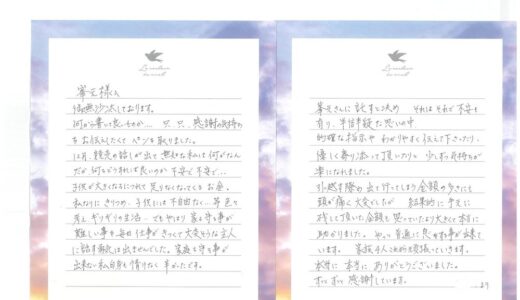 様へ
御無沙汰しております。
何から書いて良いものか… 只、只、感謝の気持ち
をお伝えしたくて ペンを取りました。
12月、競売の話しが出て 無知な私は何がなん
だか 何をどうすれば良いのか 不安で不安で…
子供が大きくなるにつれて 足りなくなってくる お金。
私なりに きりつめ、子供には 不自由なく…
考え ギリギリの生活… でも やはり 家を守る事が
難しい事を 毎日仕事が きつくて大変そうな 主人
に話す勇気は 出ませんでした。 家族を守る事が
出来ない 私自身も 情けなく 辛かったです。
さんに 託すと決め それは それで 不安も
有り、半信半疑な 思いの中、
的確な指示や わかりやすく伝えて下さったり、
優しく寄り添って頂いたりと 少しずつ 気持ちが
楽になれました。
引越す際の 出て行ってしまう 金額の多さにも
頭が痛く 大変でしたが 結果的に 手元に
残して頂いた 金額も 思っていたより 大きくて 本当に
助かりました。 やっと 普通に 息がする事が 出来て
います。 家族4人 決め 頑張っていきます。
本当に 本当に ありがとうございました。
感謝しています。